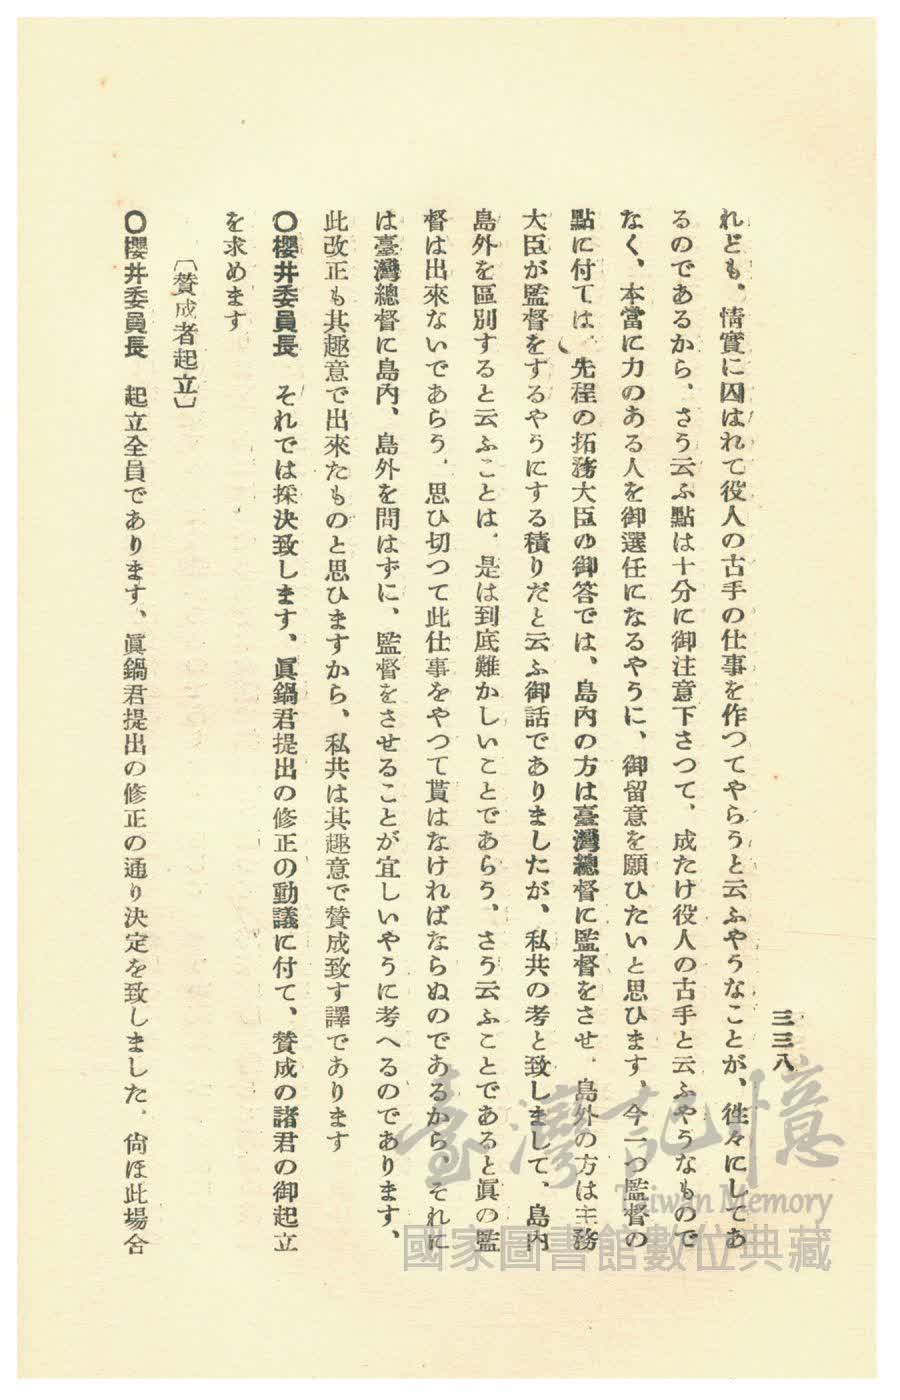 三三八
れども、情實に囚はれて役人の古手の仕事を作つてやらうと云ふやうなことが、徃々にしてあ
るのであるから、さう云ふ點は十分に御注意下さつて、成たけ役人の古手と云ふやうなもので
なく、本當に力のある人を御選任になるやうに、御留意を願ひたいと思ひます、今一つ監督の
點に付ては、先程の拓務大臣の御答では、島內の方は臺灣總督に監督をさせ、島外の方は主務
大臣が監督をするやうにする積りだと云ふ御話でありましたが、私共の考と致しまして、島內
島外を區別すると云ふことは、是は到底難かしいことであらう、さう云ふことであると眞の監
督は出來ないであらう、思ひ切つて此仕事をやつて貰はなければならぬのであるから、それに
は臺灣總督に島內、島外を問はずに、監督をさせることが宜しいやうに考へるのであります、
此改正も其趣意で出來たものと思ひますから、私共は其趣意で賛成致す譯であります
〇櫻井委員長　それでは採決致します、眞鍋君提出の修正の動議に付て、賛成の諸君の御起立
を求めます
〔賛成者起立〕
〇櫻井委員長　起立全員であります、眞鍋君提出の修正の通り決定を致しました、尙ほ此場合
臺灣記憶
Taiwan Memory
國家圖書館數位典藏